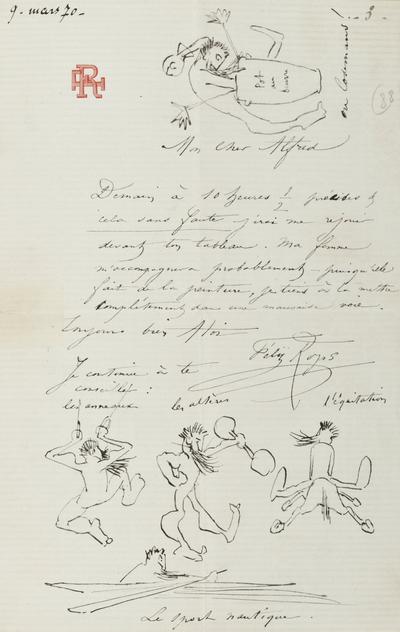 9 - mars 70 -
- 3 -
88
Pot
au
beurre
Mon cher Alfred
Demain à 10 heures 1/2 précises &
cela sans faute - j'irai me réjouir
devant ton tableau. Ma femme
m'accompagnera probablement - puisqu'elle
fait de la peinture, je tiens à la mettre
complètement dans une mauvaise voie.
Toujours bien à toi
Félix Rops
Je continue à te
conseiller :
les anneaux
les altères
l'équitation
Le sport nautique.